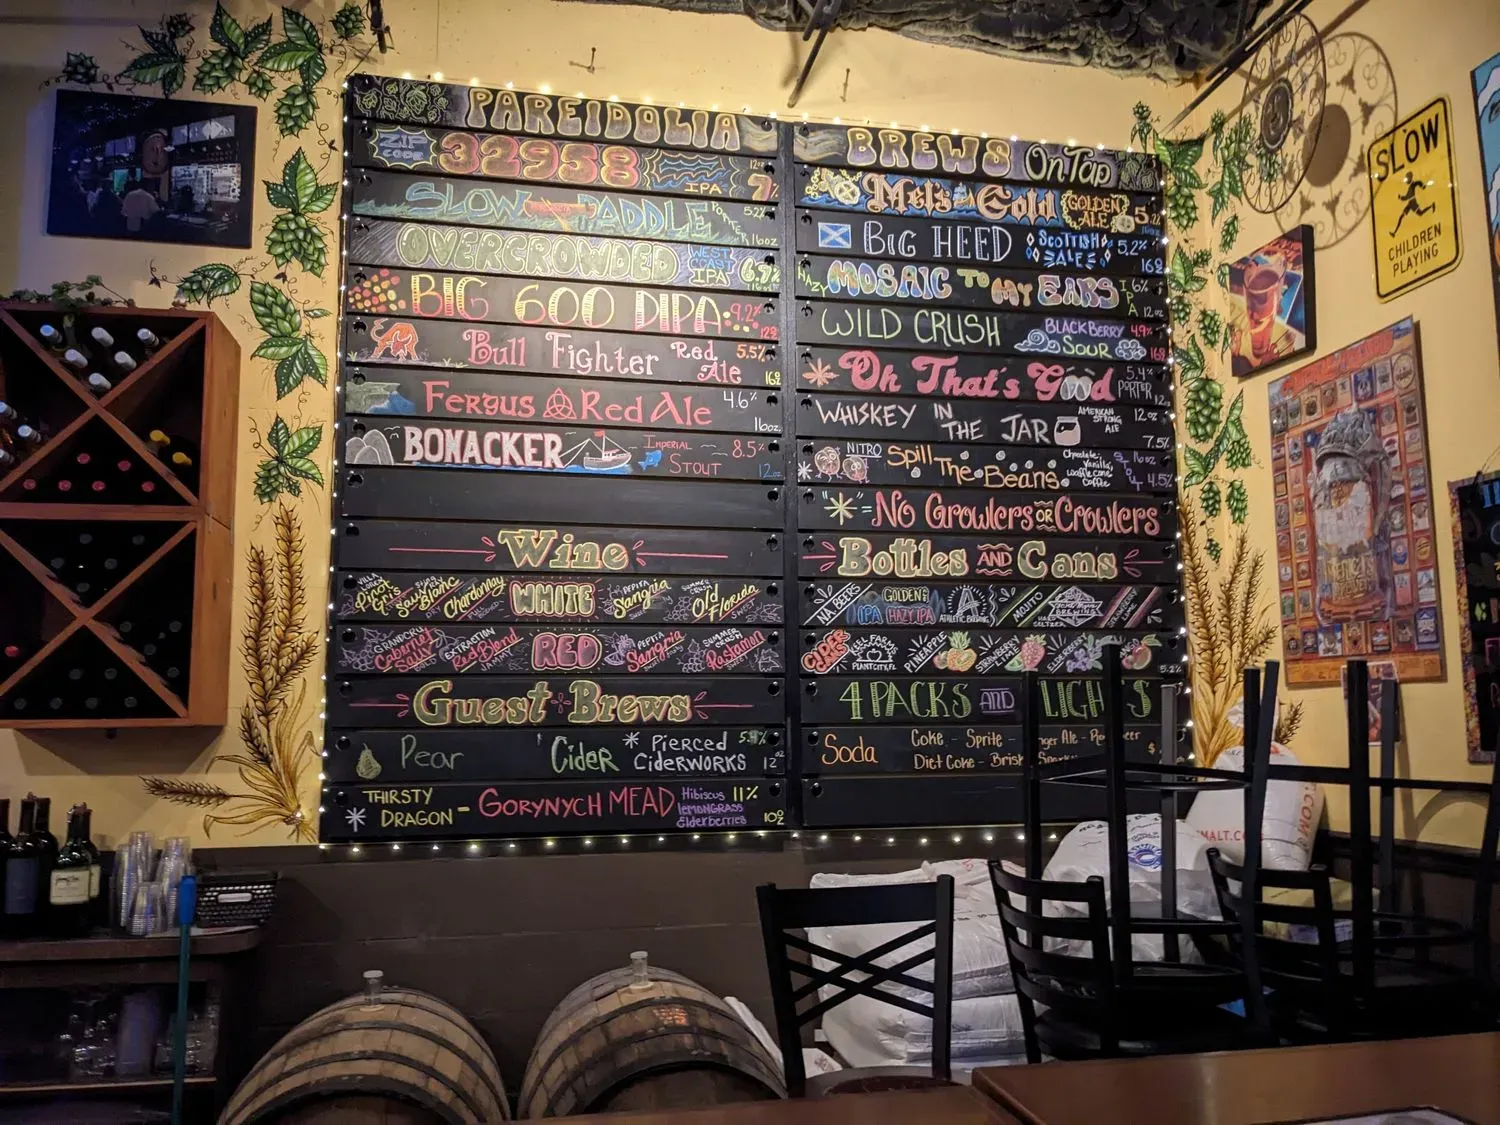 PAREIDOLIA BREWS On Tap
ZIP CODE 32958 IPA 12oz 7%
SLOW PADDLE PORTER 5.2% 16oz
OVERCROWDED WEST COAST IPA 6.7% 16oz
BIG 600 DIPA 9.2% 12oz
Bull Fighter Red Ale 5.5% 16oz
FERGUS RED ALE 4.6% 16oz
BONACKER IMPERIAL STOUT 8.5% 12oz
Wine
VILLA Pinot Gris Sauv Blanc Chardonnay WHITE PEPITA Sangria SUMMER CRUSH Old Florida SWEET
GRANDCRU Cabernet Sauv EXTRASTIAN Red Blend JAMMY RED PEPITA Sangria SUMMER CRUSH SWEET
Guest Brews
Pear CIDER PIERCED CIDERWORKS 5.4% 12oz
THIRSTY DRAGON - GORYNYCH MEAD Hibiscus LEMONGRASS Elderberries 11% 10oz
Mel's Gold GOLDEN ALE 5.% 16oz
BIG HEED SCOTTISH ALE 5.2% 16oz
HAZY MOSAIC TO MY EARS IPA 6% 12oz
WILD CRUSH BLACKBERRY SOUR 4.9% 16oz
Oh That's Good 5.4% PORTER 12oz
WHISKEY IN THE JAR AMERICAN STRONG ALE 12oz 7.5%
NITRO Spill The Beans Chocolate, Vanilla, Waffle cone Coffee STOUT 16oz 4.5%
"*"= NO GROWLERS OR CROWLERS
Bottles AND Cans
N.A. BEERS IPA GOLDEN HAZY IPA ATHLETIC BREWING MOJITO HARD SELTZER STRAWBERRY LIME
CIDER KEEL FARMS PLANT CITY, FL PINEAPPLE STRAWBERRY LIME ELDERBERRY 5.2%
4 PACKS AND
Soda Coke - Sprite -
Diet Coke -
SLOW
CHILDREN
PLAYING
MALT.CO